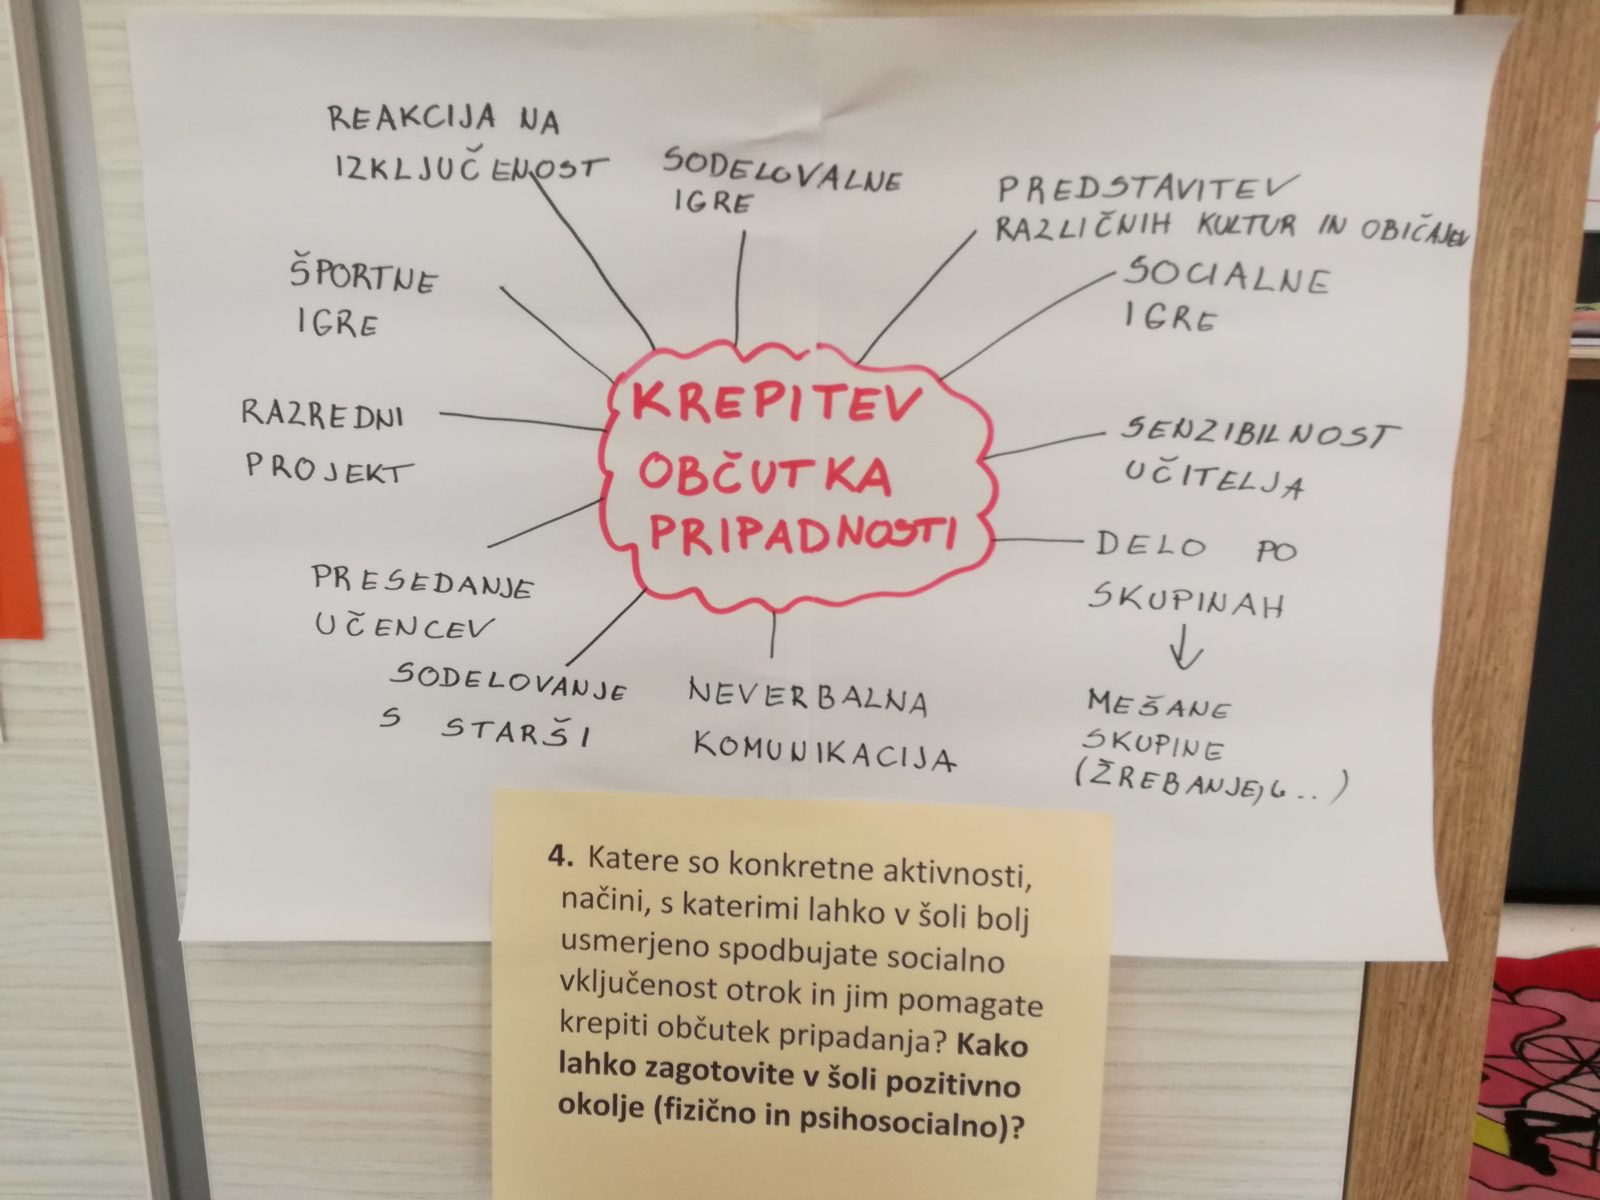 REAKCIJA NA
IZKLJUČENOST
SODELOVALNE
IGRE
PREDSTAVITEV
RAZLIČNIH KULTUR IN OBIČAJEV
SOCIALNE
IGRE
ŠPORTNE
IGRE
RAZREDNI
PROJEKT
KREPITEV
OBČUTKA
PRIPADNOSTI
SENZIBILNOST
UČITELJA
DELO PO
SKUPINAH
MEŠANE
SKUPINE
(ŽREBANJE, ...)
PRESEDANJE
UČENCEV
SODELOVANJE
S STARŠI
NEVERBALNA
KOMUNIKACIJA
4. Katere so konkretne aktivnosti,
načini, s katerimi lahko v šoli bolj
usmerjeno spodbujate socialno
vključenost otrok in jim pomagate
krepiti občutek pripadanja? Kako
lahko zagotovite v šoli pozitivno
okolje (fizično in psihosocialno)?